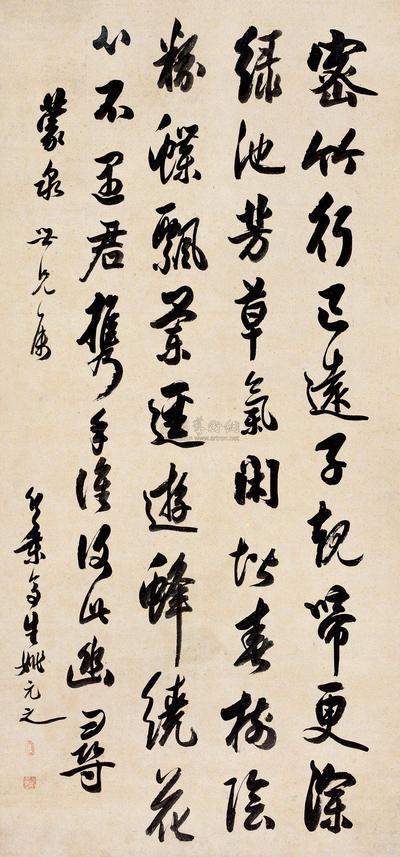 密竹行已遠子規啼更深
綠池芳草氣閒地春樹陰
粉蝶飄蘭逕遊蜂繞花
心不遇君攜手誰復此幽尋
蒙泉世兄屬
竹葉亭生姚元之